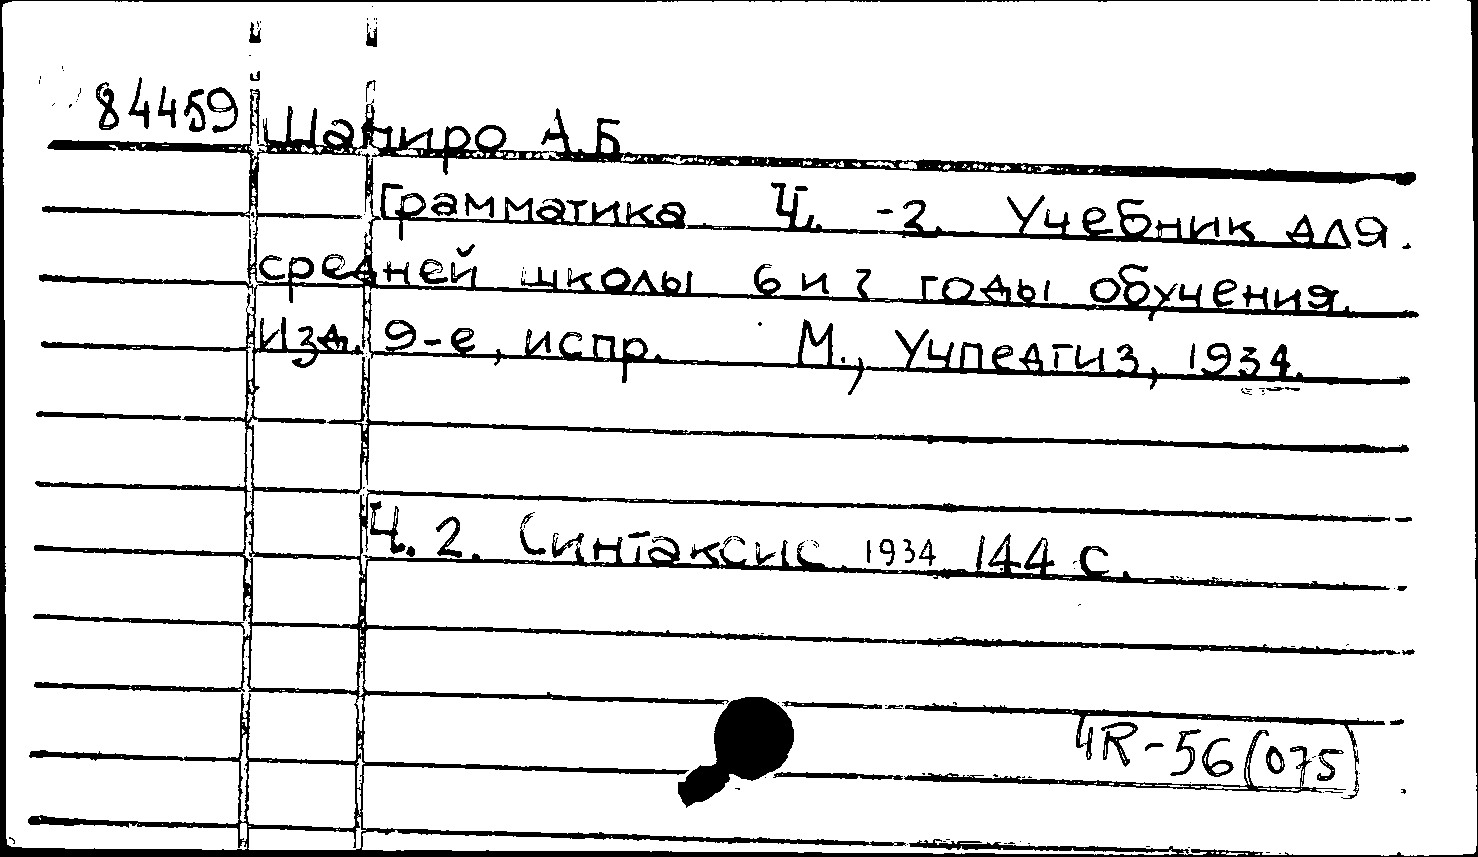 84459 Шапиро А.Б.
Грамматика Ч. -2. Учебник для
средней школы 6 и 7 годы обучения.
Изд. 9-е, испр. М., Учпедгиз, 1934.
Ч. 2. Синтаксис. 1934 144 с.
4R-56(075)